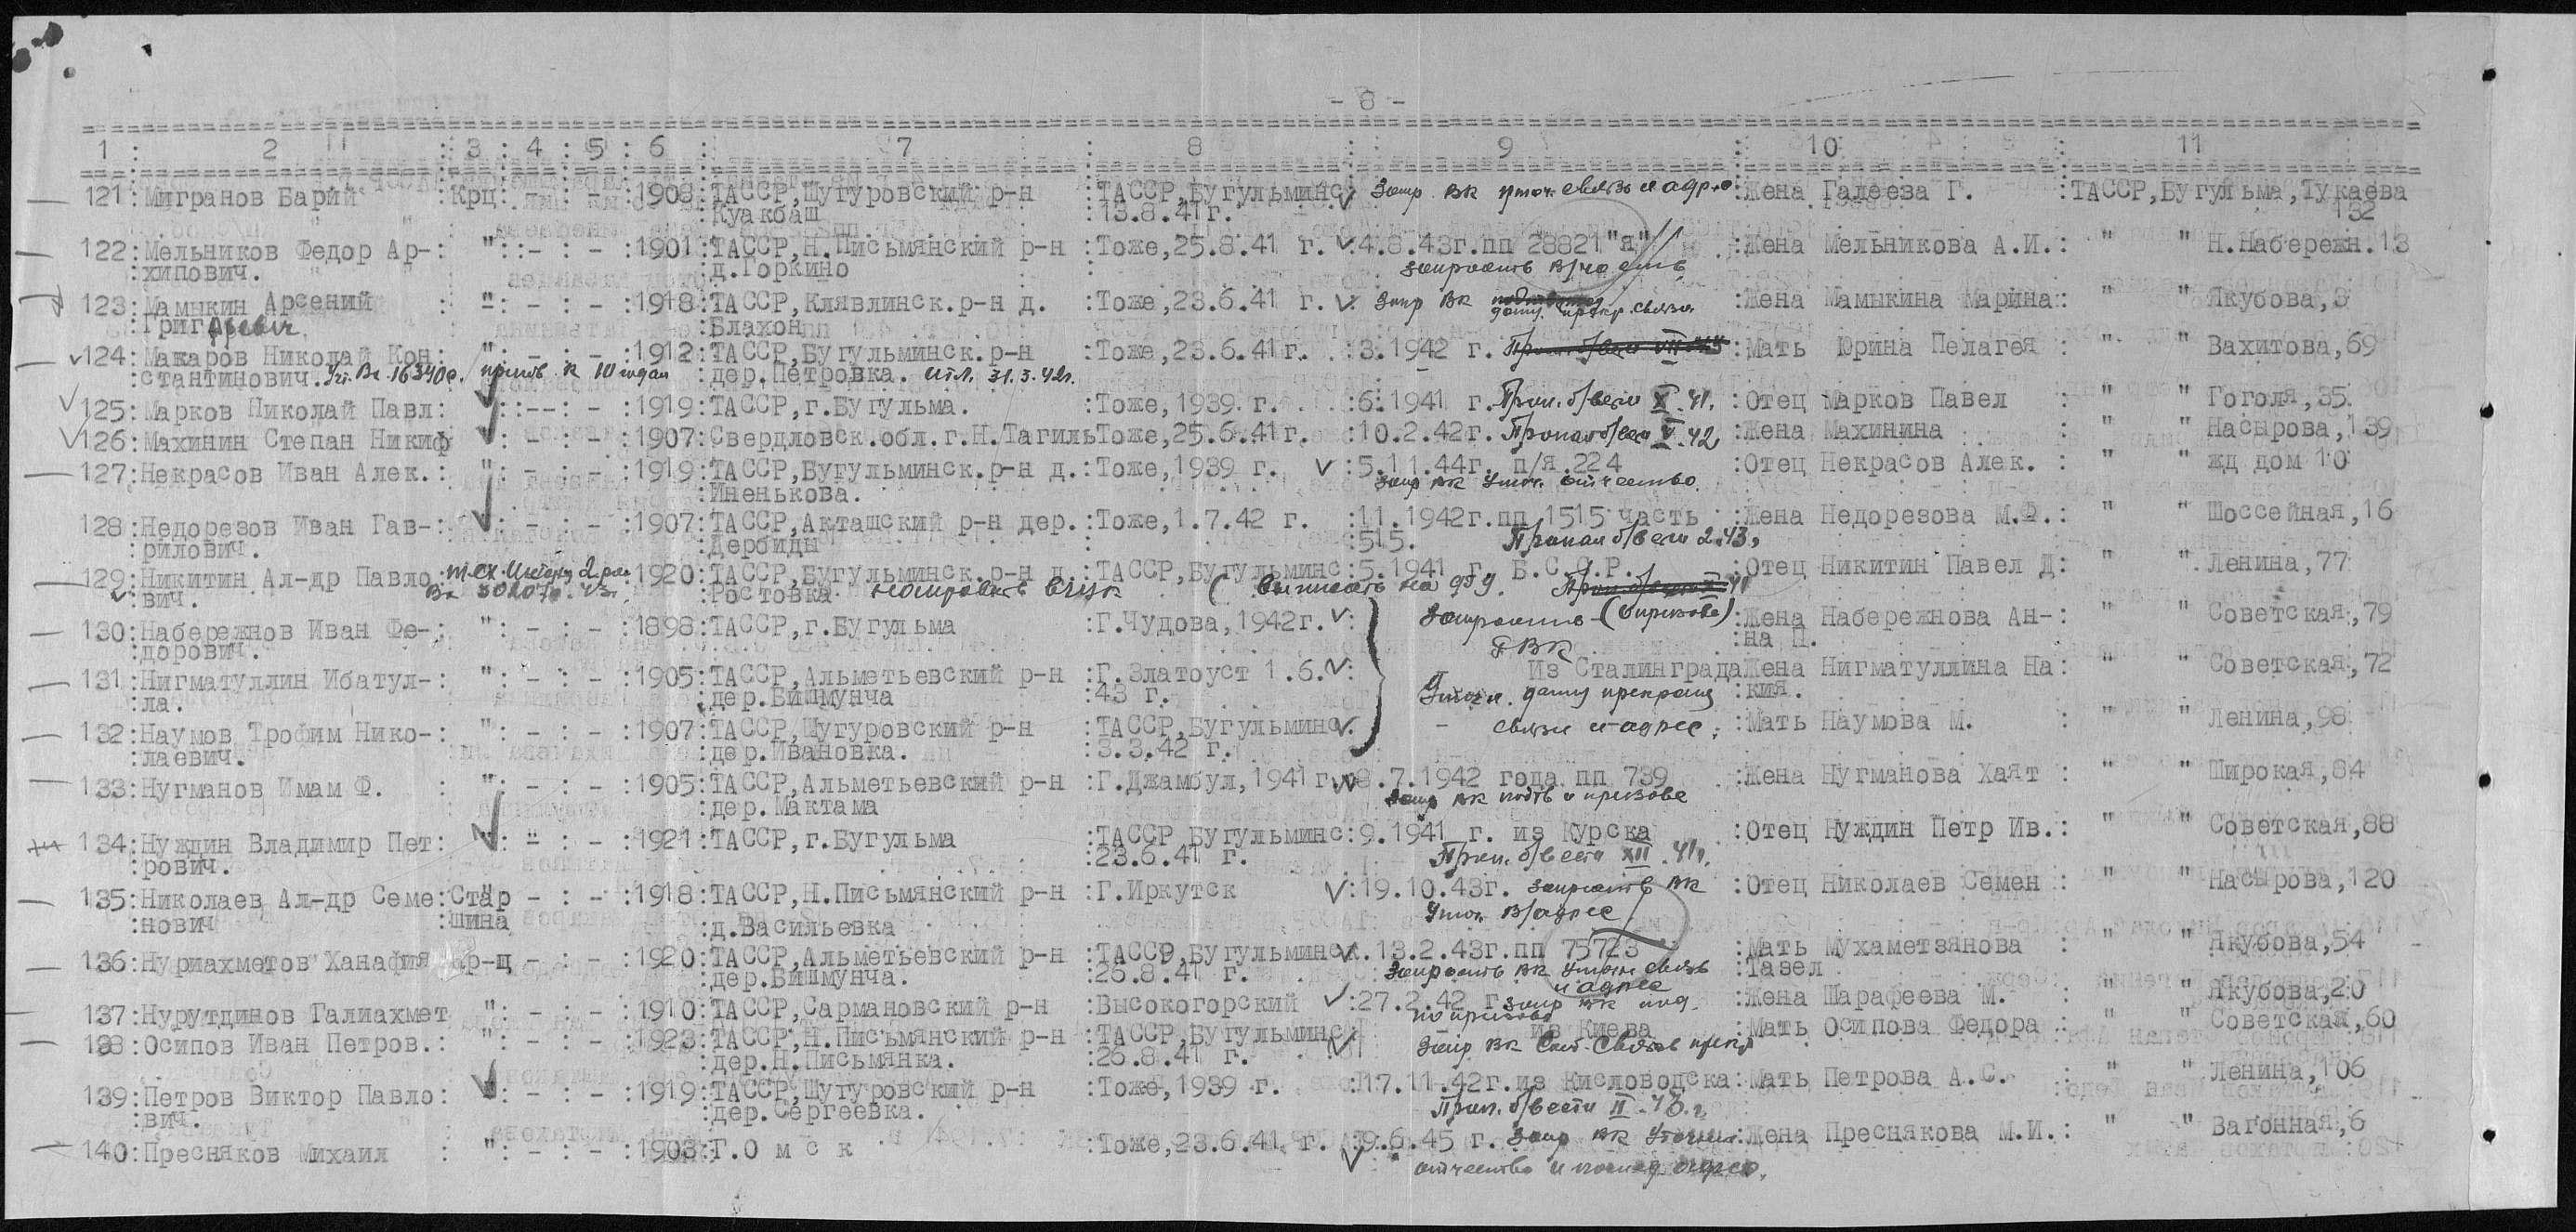 - 8 -
1 : 2 : 3 : 4 : 5 : 6 : 7 : 8 : 9 : 10 : 11
121:Мигранов Барий :Крц: - : - :1908:ТАССР,Шугуровский р-н :ТАССР,Бугульминс Запр. ВК уточ. связь и адрес :Жена Галеева Г. :ТАССР,Бугульма,Тукаева
:Куакбаш :13.8.41г. 132
122:Мельников Федор Ар-: " : - : - :1901:ТАССР,Н.Письмянский р-н :Тоже,25.8.41 г. :4.8.43г.пп 28821"я" :Жена Мельникова А.И.: " " Н.Набережн.13
:хипович. :д.Горкино запросить в/часть
123:Мамыкин Арсений : " : - : - :1918:ТАССР,Клявлинск.р-н д. :Тоже,23.6.41 г. Запр ВК :Жена Мамыкина Марина: " " Якубова,3
:Григорьевич :Блахон дату прекр. связи
124:Макаров Николай Кон: " : - : - :1912:ТАССР,Бугульминск.р-н :Тоже,23.6.41г. :3.1942 г. :Мать Юрина Пелагея : " " Вахитова,69
:стантинович. Уч. Вх. 16340с. пригов. к 10 годам :дер.Петровка. 31.3.42г.
125:Марков Николай Павл: : -- : - :1919:ТАССР,г.Бугульма. :Тоже,1939 г. :6.1941 г. Проп. б/вести X.41. :Отец Марков Павел : " " Гоголя,35
126:Махинин Степан Никиф : - : - :1907:Свердловск.обл.г.Н.Тагиль Тоже,25.6.41г. :10.2.42г. Пропал б/вести V.42 :Жена Махинина : " " Насырова,139
127:Некрасов Иван Алек.: " : - : - :1919:ТАССР,Бугульминск.р-н д.:Тоже,1939 г. :5.11.44г. п/я 224 :Отец Некрасов Алек. : " " жд дом 10
:Иненькова. запр ВК уточ. отчество
128:Недорезов Иван Гав-: : - : - :1907:ТАССР,Акташский р-н дер.:Тоже,1.7.42 г. :11.1942г.пп 1515 часть :Жена Недорезова М.Ф.: " " Шоссейная,16
:рилович. :Дербиды :515. Пропал б/вести 2.43.
129:Никитин Ал-др Павло: :1920:ТАССР,Бугульминск.р-н д.:ТАССР,Бугульминс:5.1941 г. Б.С.С.Р. :Отец Никитин Павел Д: " " Ленина,77
:вич. :Ростовка
130:Набережнов Иван Фе-: " : - : - :1898:ТАССР,г.Бугульма :Г.Чудова,1942г. Запросить (о призове) :Жена Набережнова Ан-: " " Советская,79
:дорович. РВК :на П.
131:Нигматуллин Ибатул-: " : - : - :1905:ТАССР,Альметьевский р-н :Г.Златоуст 1.6. Из Сталинграда :Жена Нигматуллина На: " " Советская,72
:ла. :дер.Бишмунча :43 г. Уточн. дату прекращ :кия.
132:Наумов Трофим Нико-: " : - : - :1907:ТАССР,Шугуровский р-н :ТАССР,Бугульминс - связи и адрес :Мать Наумова М. : " " Ленина,98
:лаевич. :дер.Ивановка. :3.3.42 г.
133:Нугманов Имам Ф. : " : - : - :1905:ТАССР,Альметьевский р-н :Г.Джамбул,1941 г. 8.7.1942 года пп 739 :Жена Нугманова Хаят : " " Широкая,84
:дер.Мактама Запр ВК подтв о призове
134:Нуждин Владимир Пет: : - : - :1921:ТАССР,г.Бугульма :ТАССР Бугульминс:9.1941 г. из Курска :Отец Нуждин Петр Ив.: " " Советская,88
:рович. :23.6.41 г. Проп. б/вести XII.41г.
135:Николаев Ал-др Семе:Стар - : - :1918:ТАССР,Н.Письмянский р-н :Г.Иркутск :19.10.43г. запросить ВК :Отец Николаев Семен : " " Насырова,120
:нович :шина :д.Васильевка Уточ в/адрес
136:Нуриахметов Ханафия Кр-ц - : - :1920:ТАССР,Альметьевский р-н :ТАССР,Бугульминск.13.2.43г.пп 75723 :Мать Мухаметзянова : " " Якубова,54
:дер.Бишмунча. :26.8.41 г. Запросить ВК уточн связь :Тазел
и адрес
137:Нурутдинов Галиахмет " : - : - :1910:ТАССР,Сармановский р-н :Высокогорский :27.2.42 г. запр ВК под. :Жена Шарафеева М. : " " Якубова,20
по призову
138:Осипов Иван Петров.: " : - : - :1923:ТАССР,Н.Письмянский р-н :ТАССР,Бугульминс - из Киева :Мать Осипова Федора : " " Советская,60
:дер.Н.Письмянка. :26.8.41 г. Запр ВК связь прекр
139:Петров Виктор Павло: : - : - :1919:ТАССР,Шугуровский р-н :Тоже,1939 г. :17.11.42г.из Кисловодска:Мать Петрова А.С. : " " Ленина,106
:вич. :дер.Сергеевка. Проп. б/вести II.43.г.
140:Пресняков Михаил : " : - : - :1903:Г.О м с к :Тоже,23.6.41 г. :9.6.45 г. Запр ВК :Жена Преснякова М.И.: " " Вагонная,6
отчество и адрес.